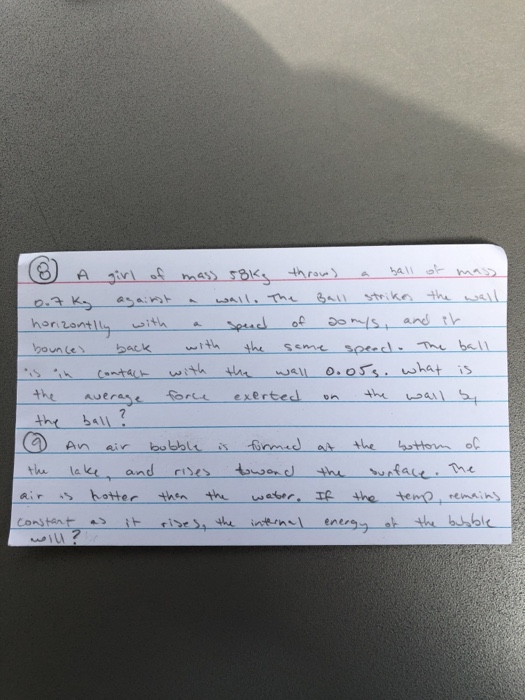 ⑧ A girl of mass 58Kg throws a ball of mass
0.7 Kg against a wall. The Ball strikes the wall
horizontlly with a speed of 20m/s, and it
bounces back with the same speed. The ball
is in contact with the wall 0.05s. what is
the average force exerted on the wall by
the ball?
⑨ An air bubble is formed at the bottom of
the lake, and rises toward the surface. The
air is hotter then the water. If the temp, remains
constant as it rises, the internal energy of the bubble
will?